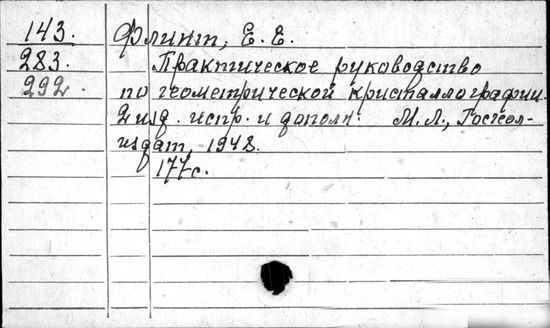 143. Флинт, Е. Е.
283. Практическое руководство
292. по геометрической кристаллографии.
2 изд. испр. и дополн. М.Л., Госгеол-
издат, 1948.
177 с.